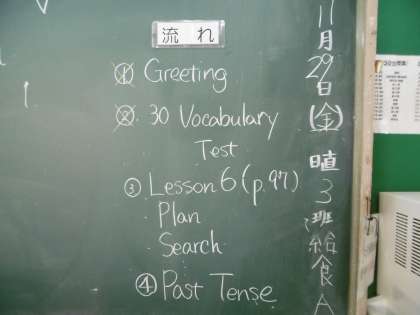 流れ
① Greeting
② 30 Vocabulary
Test
③ Lesson 6 (p.97)
Plan
Search
④ Past Tense
11月29日(金)
日直 3班 給食 A